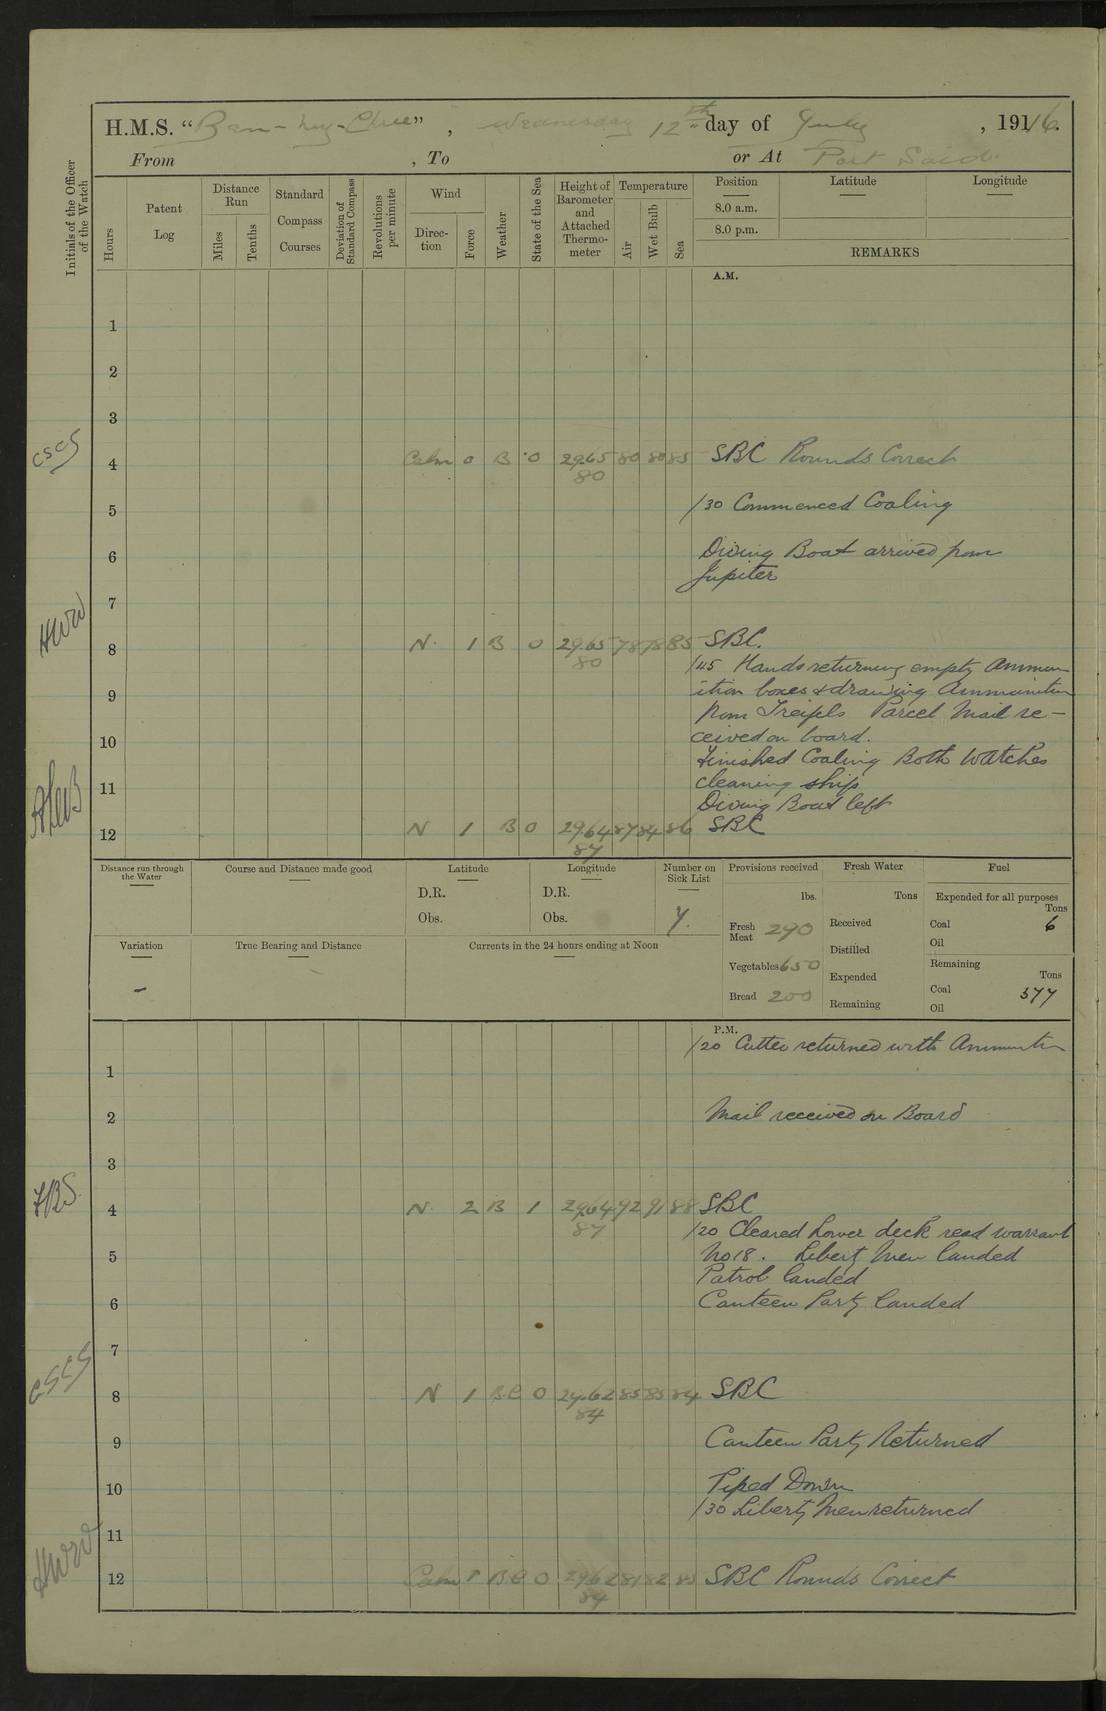 H.M.S. “Ben-my-Chree”, Wednesday 12th day of July, 1916.
From , To or At Port Said.
Initials of the Officer of the Watch
Hours
Patent Log
Distance Run
Miles
Tenths
Standard Compass Courses
Deviation of Standard Compass
Revolutions per minute
Wind
Direction
Force
Weather
State of the Sea
Height of Barometer and Attached Thermometer
Temperature
Air
Wet Bulb
Sea
Position Latitude Longitude
8.0 a.m.
8.0 p.m.
REMARKS
A.M.
1
2
3
CSCS 4 Calm 0 B 0 29.65 80 80 85 SBC Rounds Correct
80
5 /30 Commenced Coaling
6 Diving Boat arrived from
Jupiter
7
HWW 8 N. 1 B 0 29.65 78 78 85 SBC.
80
/45 Hands returning empty Ammun
9 ition boxes & drawing Ammunition
from Parcel Mail re-
10 ceived on board.
Finished Coaling Both Watches
11 cleaning ship
Diving Boat left
12 N 1 B 0 29.64 87 84 86 SBC
87
Distance run through the Water
Course and Distance made good
Latitude
D.R.
Obs.
Longitude
D.R.
Obs.
Number on Sick List
7.
Provisions received
lbs.
Fresh Meat 290
Vegetables 650
Bread 200
Fresh Water
Tons
Received
Distilled
Expended
Remaining
Fuel
Expended for all purposes
Tons
Coal 6
Oil
Remaining
Tons
Coal 577
Oil
Variation
-
True Bearing and Distance
Currents in the 24 hours ending at Noon
P.M.
/20 Cutter returned with Ammuntn
1
2 Mail received on Board
3
FBS. 4 N. 2 B 1 29.64 92 91 88 SBC
87
/20 Cleared Lower deck read warrant
5 No 18. Liberty Men landed
Patrol landed
6 Canteen Party landed
7
CSCS 8 N 1 BC 0 29.62 85 85 84 SBC
84
9 Canteen Party Returned
10 Piped Down
/30 Liberty Men returned
11
HWW 12 Calm BC 0 29.62 81 82 83 SBC Rounds Correct
84